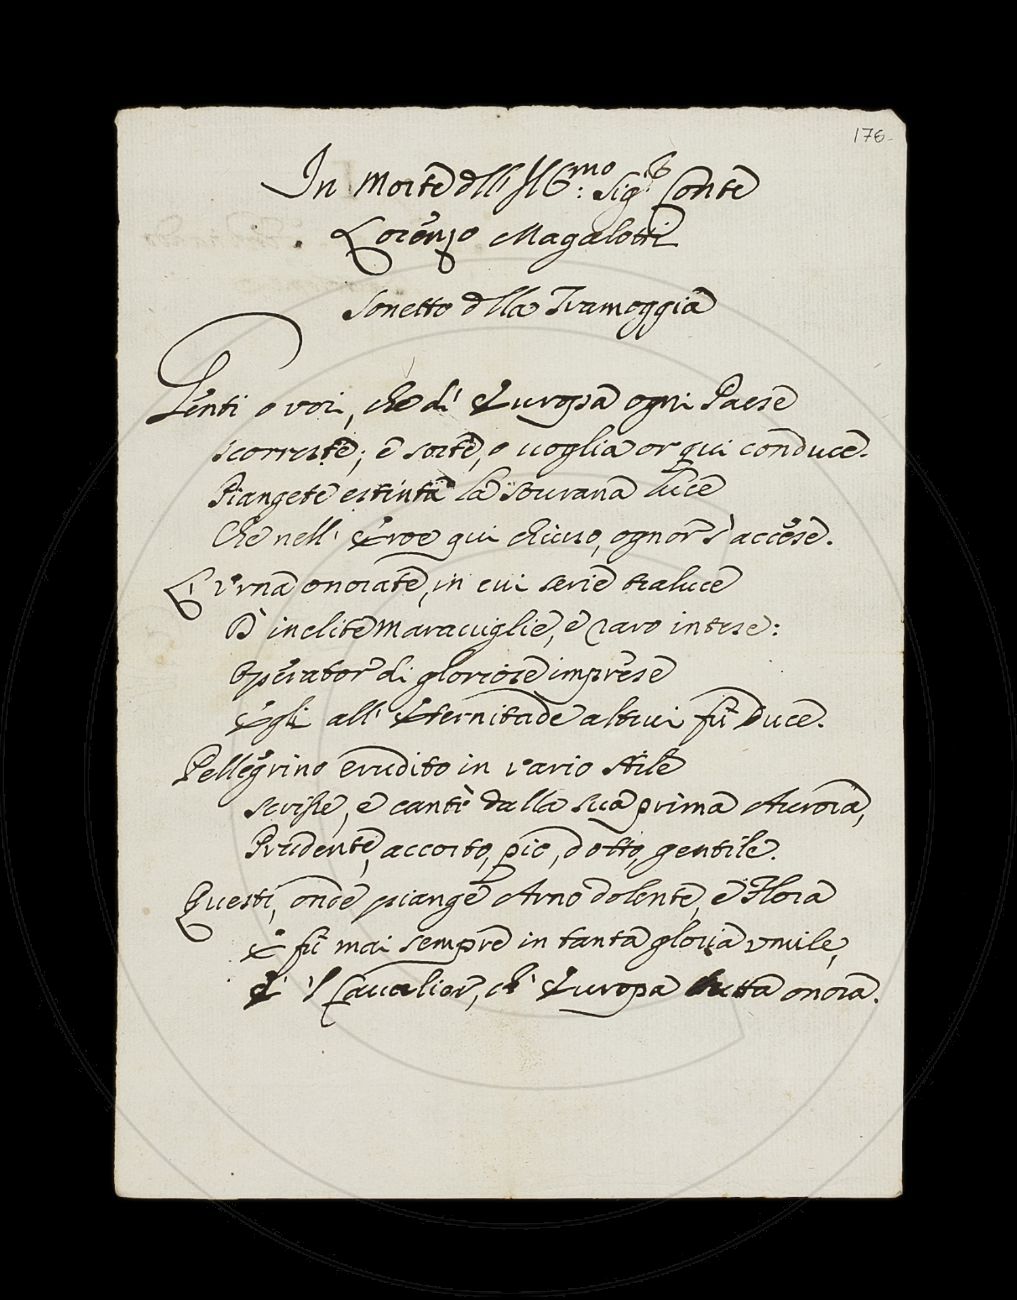 176.
In Morte dell' Ill:mo Sigr Conte
Lorenzo Magalotti
Sonetto della Tramoggia
Genti o voi, che di Europa ogni Paese
scorreste; e sorte, o uoglia or qui conduce.
Piangete estinta la sourana luce
Che nell' Eroe qui chiuso, ognor s' accese.
L' Vrna onorate, in cui serie traluce
D' inclite marauiglie, e raro intese:
Operator di gloriose imprese
Egli all' Eternitade altrui fù Duce.
Pellegrino erudito in vario stile
scrisse, e cantò dalla sua prima Aurora,
Prudente, accorto, pio, dotto, gentile.
Questi, onde piange Arno dolente, e Flora
E fù mai sempre in tanta gloria vmile,
E' 'l Caualier, ch' Europa tutta onora.